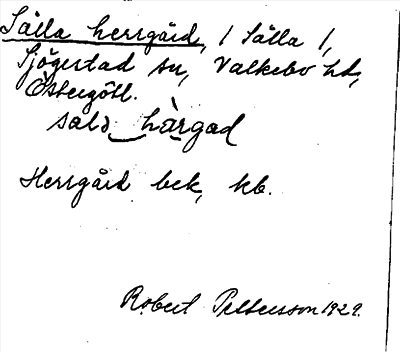 Sälla herrgård, 1 Sälla 1,
Sjögestad sn, Valkebo hd,
Östergötl.
säl͜a hàrgad
Herrgård bek, kb.
Robert Pettersson 1929.